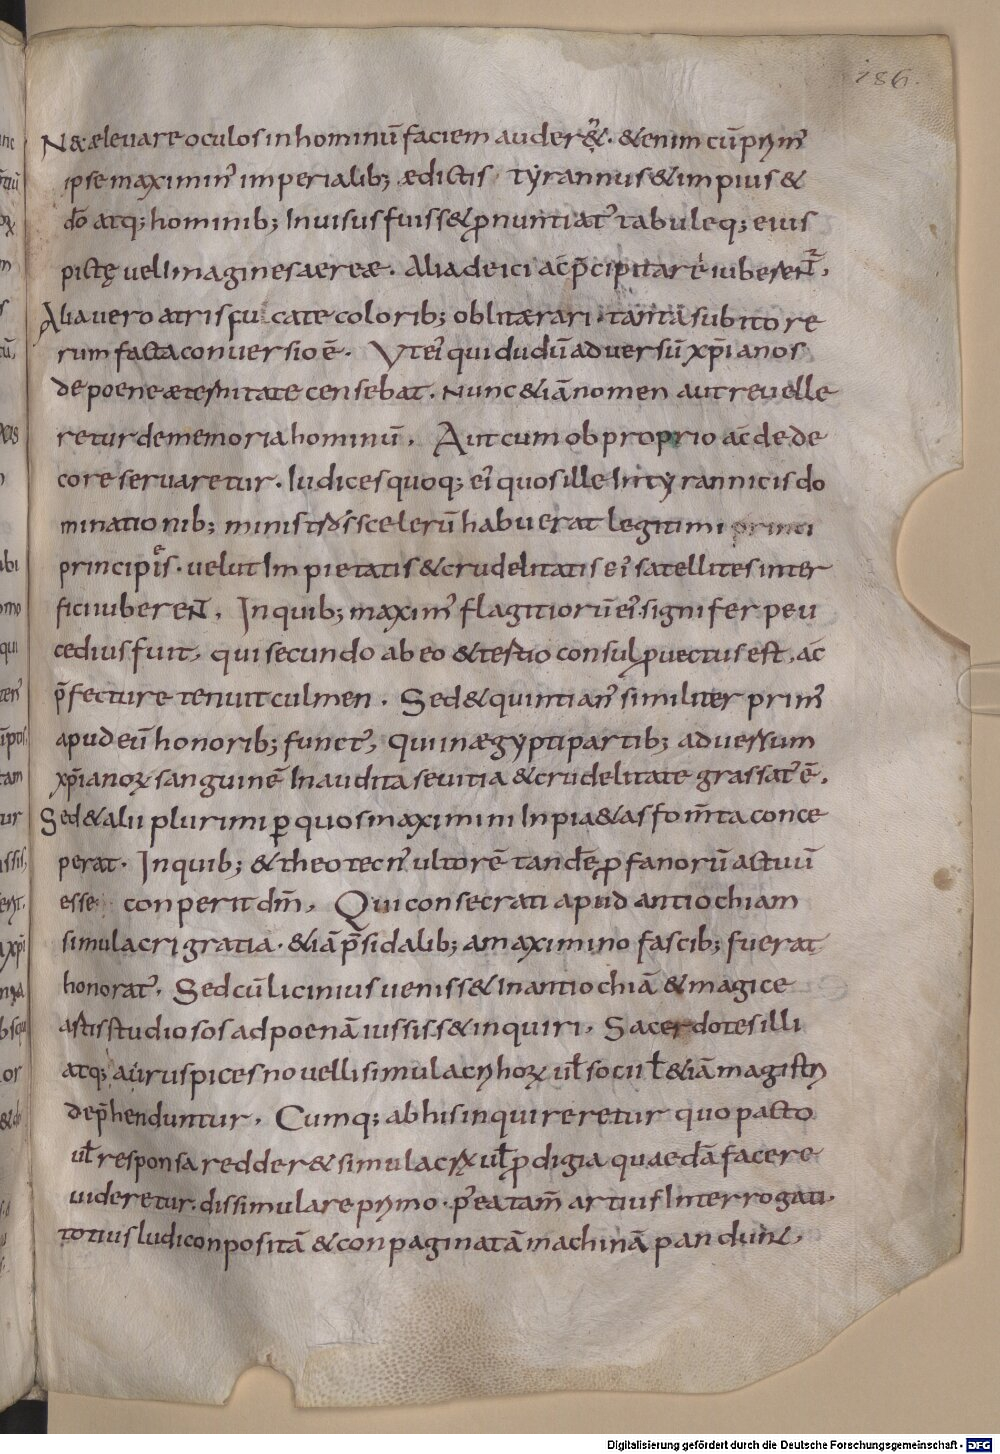 186.
N& ælevare oculos in hominū faciem auder&̉. &enim cū prym̉
ipse maximin̉ imperialib; ædictis tyrannus & impius &
dō atq; hominib; Invisus fuiss& p̱nuntiat̉ tabuleq; eius
pictę vel Imagines aereæ. Alia deici ac̄ p̄cipitare iuberen̄t,
Alia vero atris fu cate colorib; oblitærari. tantā subito re
rum facta conversio ē. Vt eỉ qui dudū adversū xp̄ianos
de poene æternitate censebat. Nunc &iā nomen aut revelle
retur de memoria hominū. Aut cum obproprio ac̄ dede
core servaretur. Iudices quoq; eỉ quos ille In tyrannicis do
minationib; ministros scelerū habuerat legitimi princi
principi̊s. velut Impietatis & crudelitatis eỉ satellites inter
fici iuberen̄t. In quib; maxim̉ flagitiorū eỉ signifer peu
cedius fuit, qui secundo ab eo & tertio consul p̱vectus est, ac̄
p̄fecture tenuit culmen. Sed & quintian̉ similiter prim̉
apud eū honorib; funct̉, qui in ægypti partib; adversum
xp̄ianoꝝ sanguinē Inaudita sevitia & crudelitate grassat̉ ē.
Sed & alii plurimi ꝑ quos maximini Inpi&as fom̄ta conce
perat. In quib; & theotecn̉ ultorē tandē p̱fanorū astuū
esse conperit dm̄, Qui consecrati apud antiochiam
simulacri gratia. &iā p̄sidalib; a maximino fascib; fuerat
honorat̉. Sed cū licinius veniss& In antiochiā & magice
artis studiosos ad poenā iussiss& inquiri. Sacerdotes illi
atq; auruspices novelli simulacri hoꝝ ul̄ socii ul̄ &iā magistri
dep̄henduntur. Cumq; ab his inquireretur quo pacto
ul̄ responsa redder& simulacrꝝ ul̄ p̱digia quaedā facere
videretur. dissimulare prymo. p̉ea tam̄ artius Interrogati.
totius ludi conpositā & conpaginatā machinā pandunt.
Digitalisierung gefördert durch die Deutsche Forschungsgemeinschaft - DFG